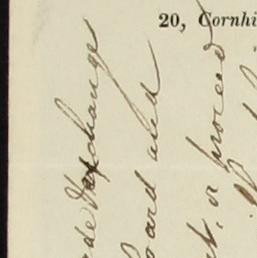 20, Cornhi
rde Exchange
oard and
at, or proceed